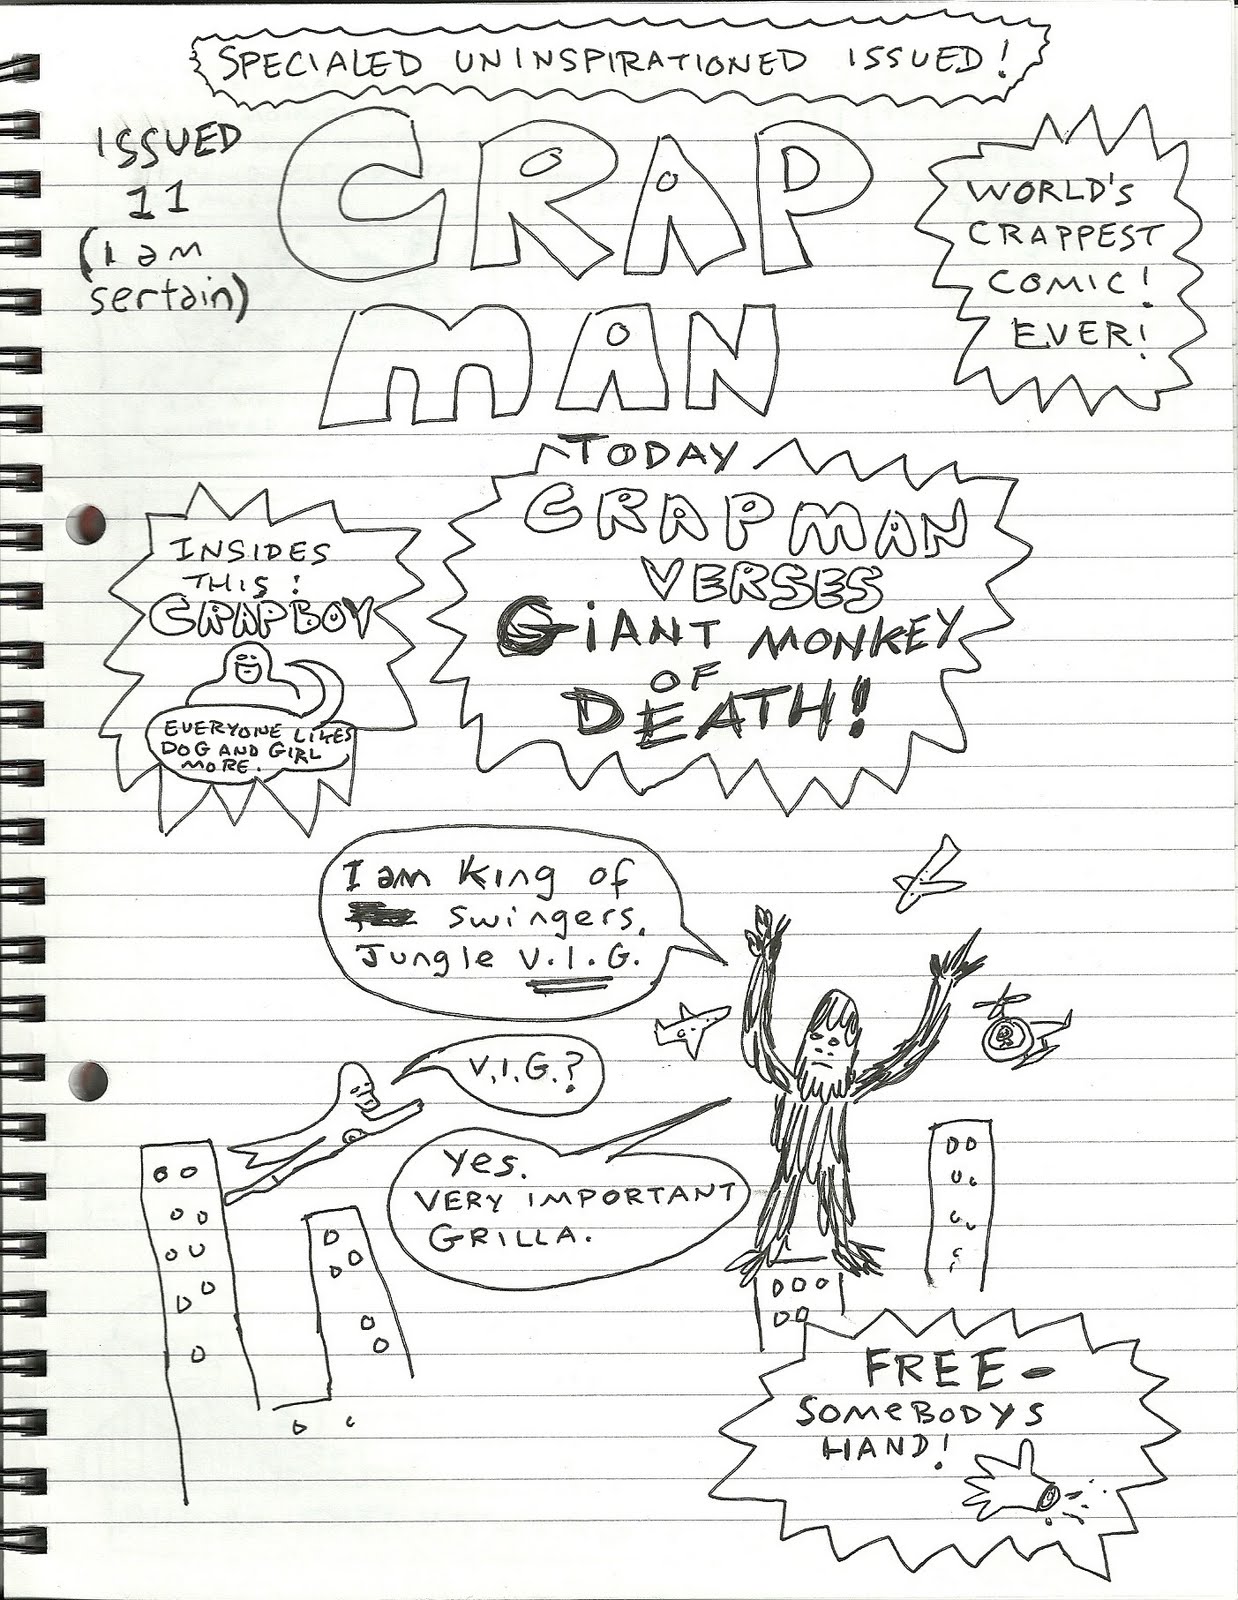 SPECIALED UNINSPIRATIONED ISSUED!
ISSUED
11
(I am
sertain)
CRAP
MAN
WORLD'S
CRAPPEST
COMIC!
EVER!
TODAY
CRAPMAN
VERSES
GIANT MONKEY
OF
DEATH!
INSIDES
THIS:
CRAPBOY
EVERYONE LIKES
DOG AND GIRL
MORE.
I am King of
swingers,
Jungle V.I.G.
V.I.G.?
Yes.
VERY IMPORTANT
GRILLA.
FREE -
SOMEBODYS
HAND!